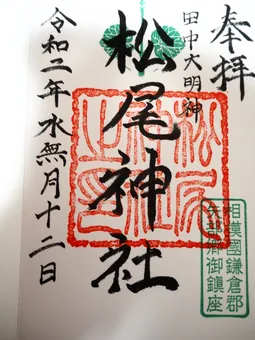 奉拝
田中大明神
松尾神社
令和二年水無月十二日
相模國鎌倉郡
矢部郷御鎮座